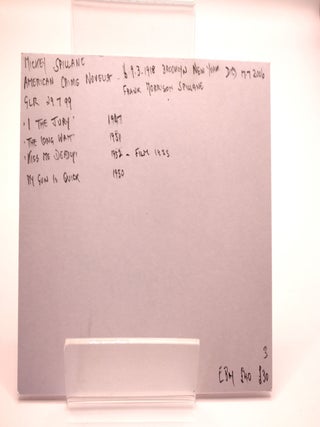 MICKEY SPILLANE
AMERICAN CRIME NOVELS - B 9.3.1918 BROOKLYN NEW YORK D 17 7 2006
FRANK MORRISON SPILLANE
29.7.99
'I THE JURY' 1947
'THE LONG WAIT' 1951
'KISS ME DEADLY' 1952 - FILM
MY GUN IS QUICK 1950
3
£40 £30